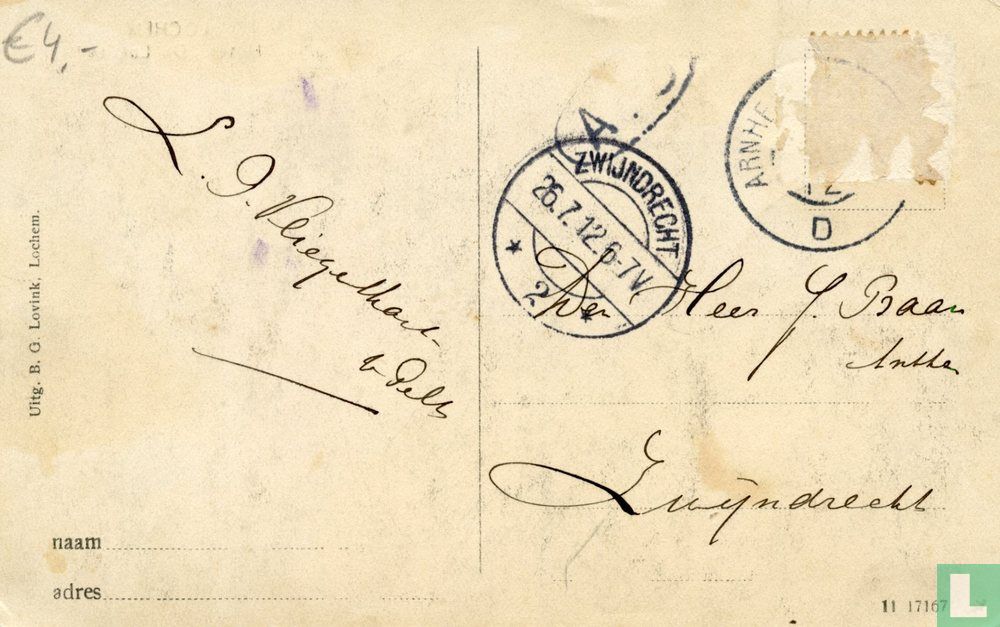 €4,-
L. J. Vliegelhart-
v. Pelt
Uitg. B. G. Lovink, Lochem.
naam
adres
ZWIJNDRECHT
26.7.12.6-7V
2
ARNHE
12
D
A
Den Heer J. Baan
Zwijndrecht
11 17167
L